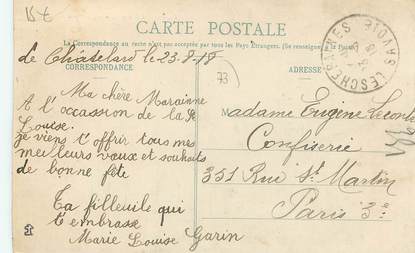 CARTE POSTALE
La Correspondance au recto n'est pas acceptée par tous les Pays Étrangers. (Se renseigner à la Poste)
CORRESPONDANCE
ADRESSE
Le Châtelard le 23-8-18
73
Ma chère Marainne
A l'occassion de la St
Louise.
je viens t'offrir tous mes
meilleurs vœux et souhaits
de bonne fête
Ta filleuile qui
t'embrasse
Marie Louise Garin
Madame Eugène Leconte
Confiserie
351 Rue St Martin
Paris 3e
LESCHERAINES SAVOIE